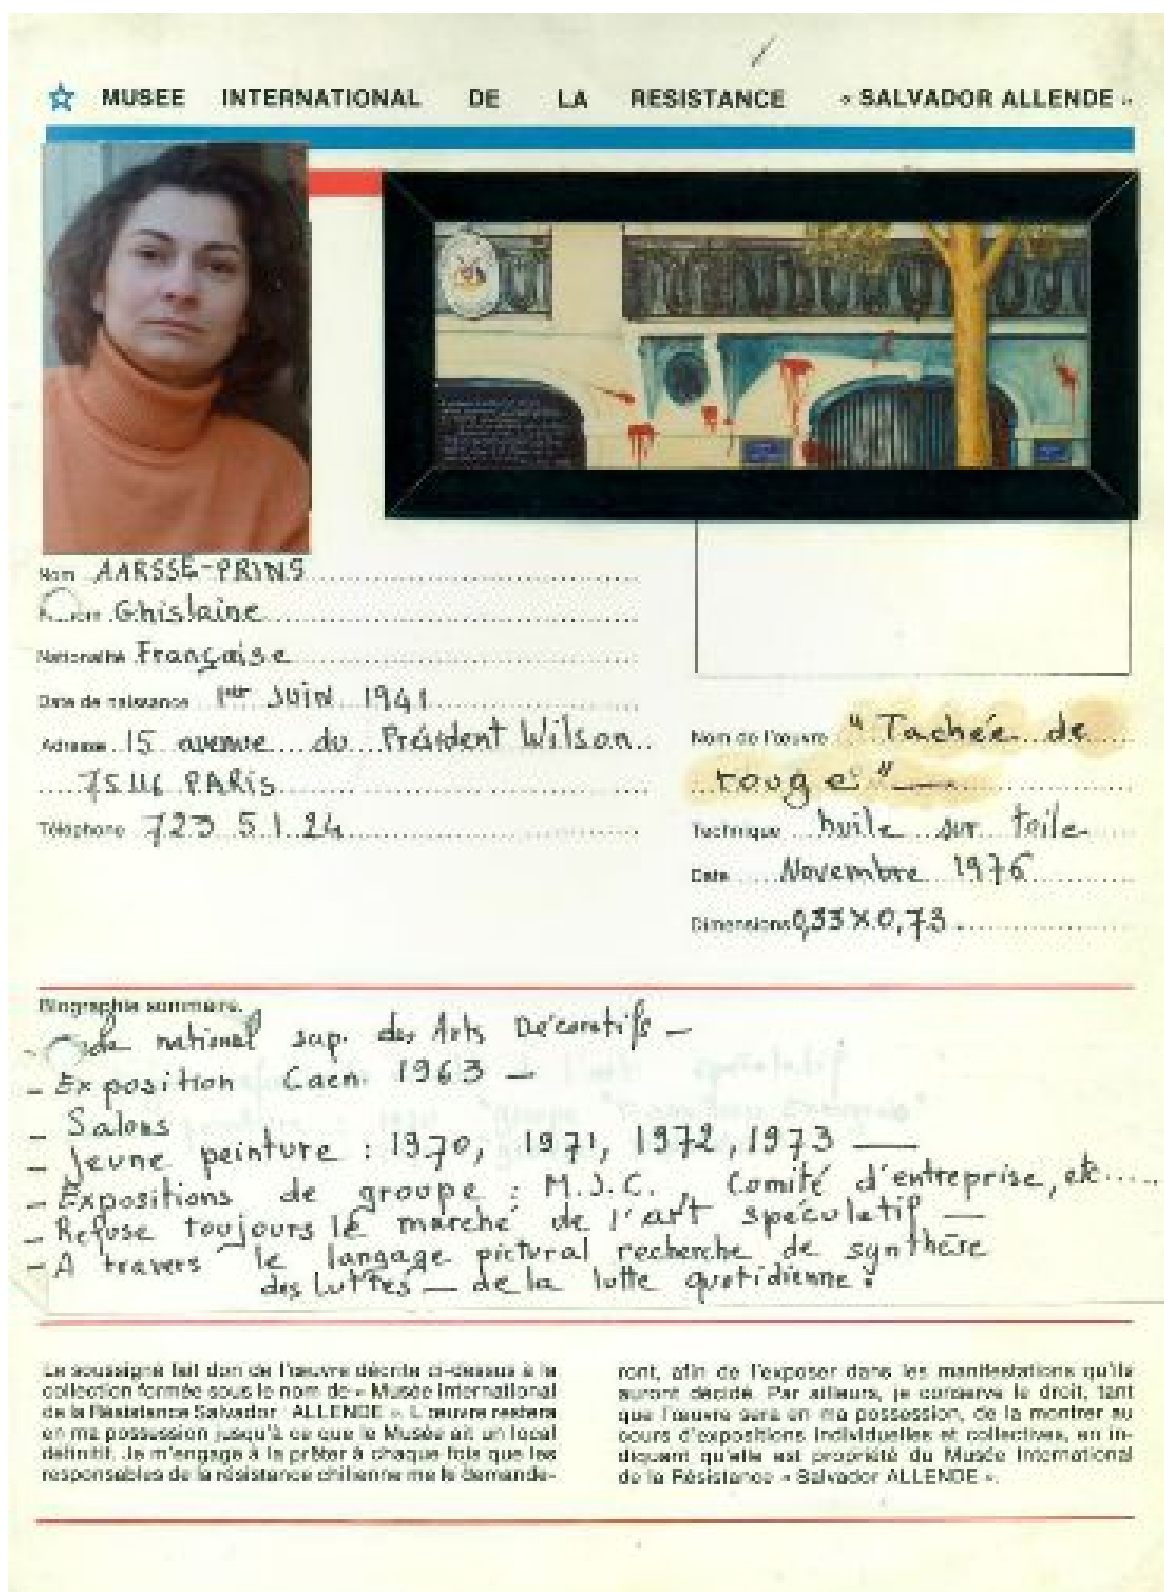 MUSEE INTERNATIONAL DE LA RESISTANCE « SALVADOR ALLENDE »
Nom AARSSE-PRINS
Ghislaine
Nationalité Française
Date de naissance 1er Juin 1941
Adresse 15 avenue du Président Wilson
75116 PARIS
Téléphone 723 51 24
Nom de l'œuvre "Tachée de
rouge"
Technique huile sur toile
Date Novembre 1976
Dimensions 0,33 X 0,73
Biographie sommaire
national sup. des Arts Décoratifs —
- Exposition Caen 1963 —
- Salons
- Jeune peinture : 1970, 1971, 1972, 1973 —
- Expositions de groupe : M.J.C., Comité d'entreprise, etc.....
- Refuse toujours le marché de l'art spéculatif —
- A travers le langage pictural recherche de synthèse
des luttes — de la lutte quotidienne.
Le soussigné fait don de l'œuvre décrite ci-dessus à la
collection formée sous le nom de « Musée International
de la Résistance Salvador ALLENDE ». L'œuvre restera
en ma possession jusqu'à ce que le Musée ait un local
définitif. Je m'engage à la prêter à chaque fois que les
responsables de la résistance chilienne me le demande-
ront, afin de l'exposer dans les manifestations qu'ils
auront décidé. Par ailleurs, je conserve le droit, tant
que l'œuvre sera en ma possession, de la montrer au
cours d'expositions individuelles et collectives, en in-
diquant qu'elle est propriété du Musée International
de la Résistance « Salvador ALLENDE ».